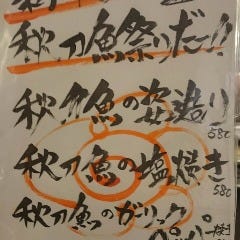 秋刀魚祭りだー!!
秋刀魚の姿造り
580
秋刀魚の塩焼き
580
秋刀魚のガーリック